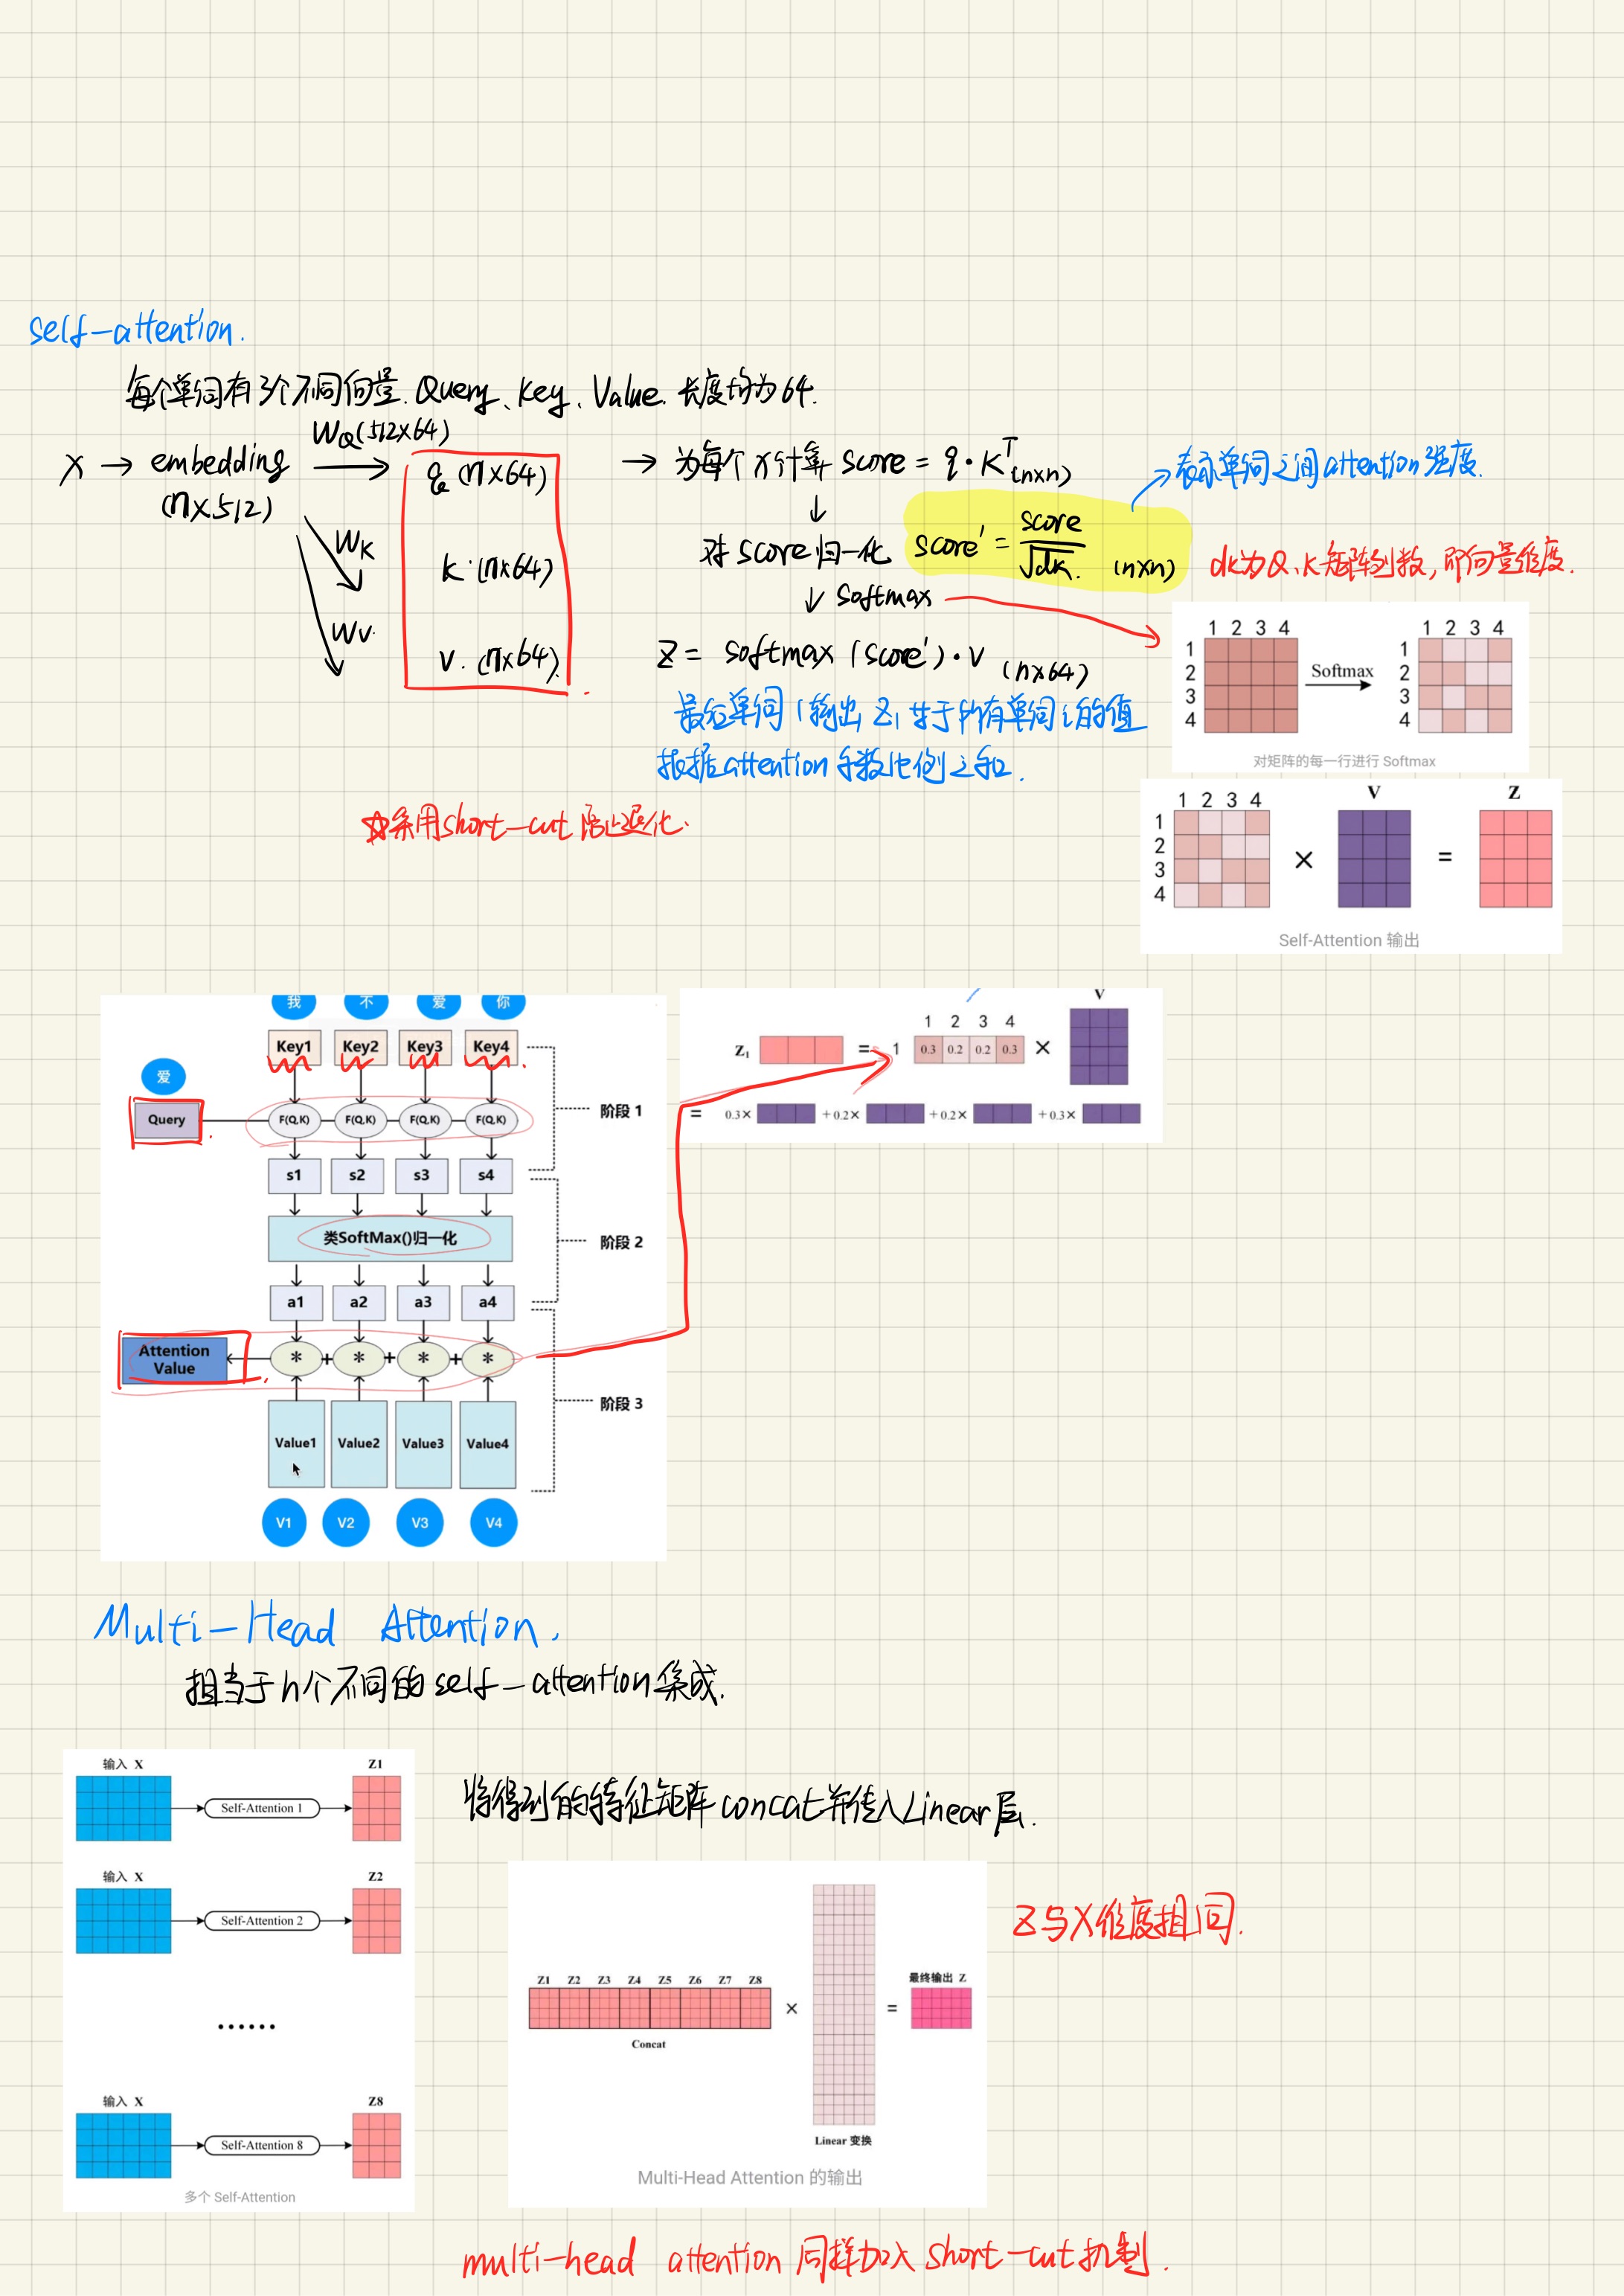 self-attention.
每个单词有3个不同向量. Query、Key、Value. 长度均为64.
X → embedding
(n×512)
WQ(512×64)
WK
Wv.
q (n×64)
k.(n×64)
v.(n×64)
→ 为每个x计算 score = q·K^T (n×n)
↓
对score归一化 score' = score/√dk. (n×n)
表示单词之间attention强度.
dk为Q、K矩阵列数,即向量维度.
↓ Softmax
Z = softmax(score')·v (n×64)
最后单词1输出Z1等于所有单词i的值
根据attention系数比例之和.
☆采用short-cut防止退化.
1 2 3 4
1
2
3
4
Softmax
1 2 3 4
1
2
3
4
对矩阵的每一行进行 Softmax
1 2 3 4
1
2
3
4
×
V
=
Z
Self-Attention 输出
我 不 爱 你
Key1 Key2 Key3 Key4
爱
Query
F(Q,K) F(Q,K) F(Q,K) F(Q,K)
阶段 1
s1 s2 s3 s4
类SoftMax()归一化
阶段 2
a1 a2 a3 a4
Attention
Value
* + * + * + *
阶段 3
Value1 Value2 Value3 Value4
V1 V2 V3 V4
V
1 2 3 4
Z1 = 1 0.3 0.2 0.2 0.3 ×
= 0.3× +0.2× +0.2× +0.3×
Multi-Head Attention.
相当于h个不同的self-attention集成.
输入 X
Self-Attention 1
Z1
输入 X
Self-Attention 2
Z2
......
输入 X
Self-Attention 8
Z8
多个 Self-Attention
将得到的特征矩阵concat并传入Linear层.
Z1 Z2 Z3 Z4 Z5 Z6 Z7 Z8
Concat
×
Linear 变换
=
最终输出 Z
Multi-Head Attention 的输出
Z与X维度相同.
multi-head attention 同样加入 short-cut机制.